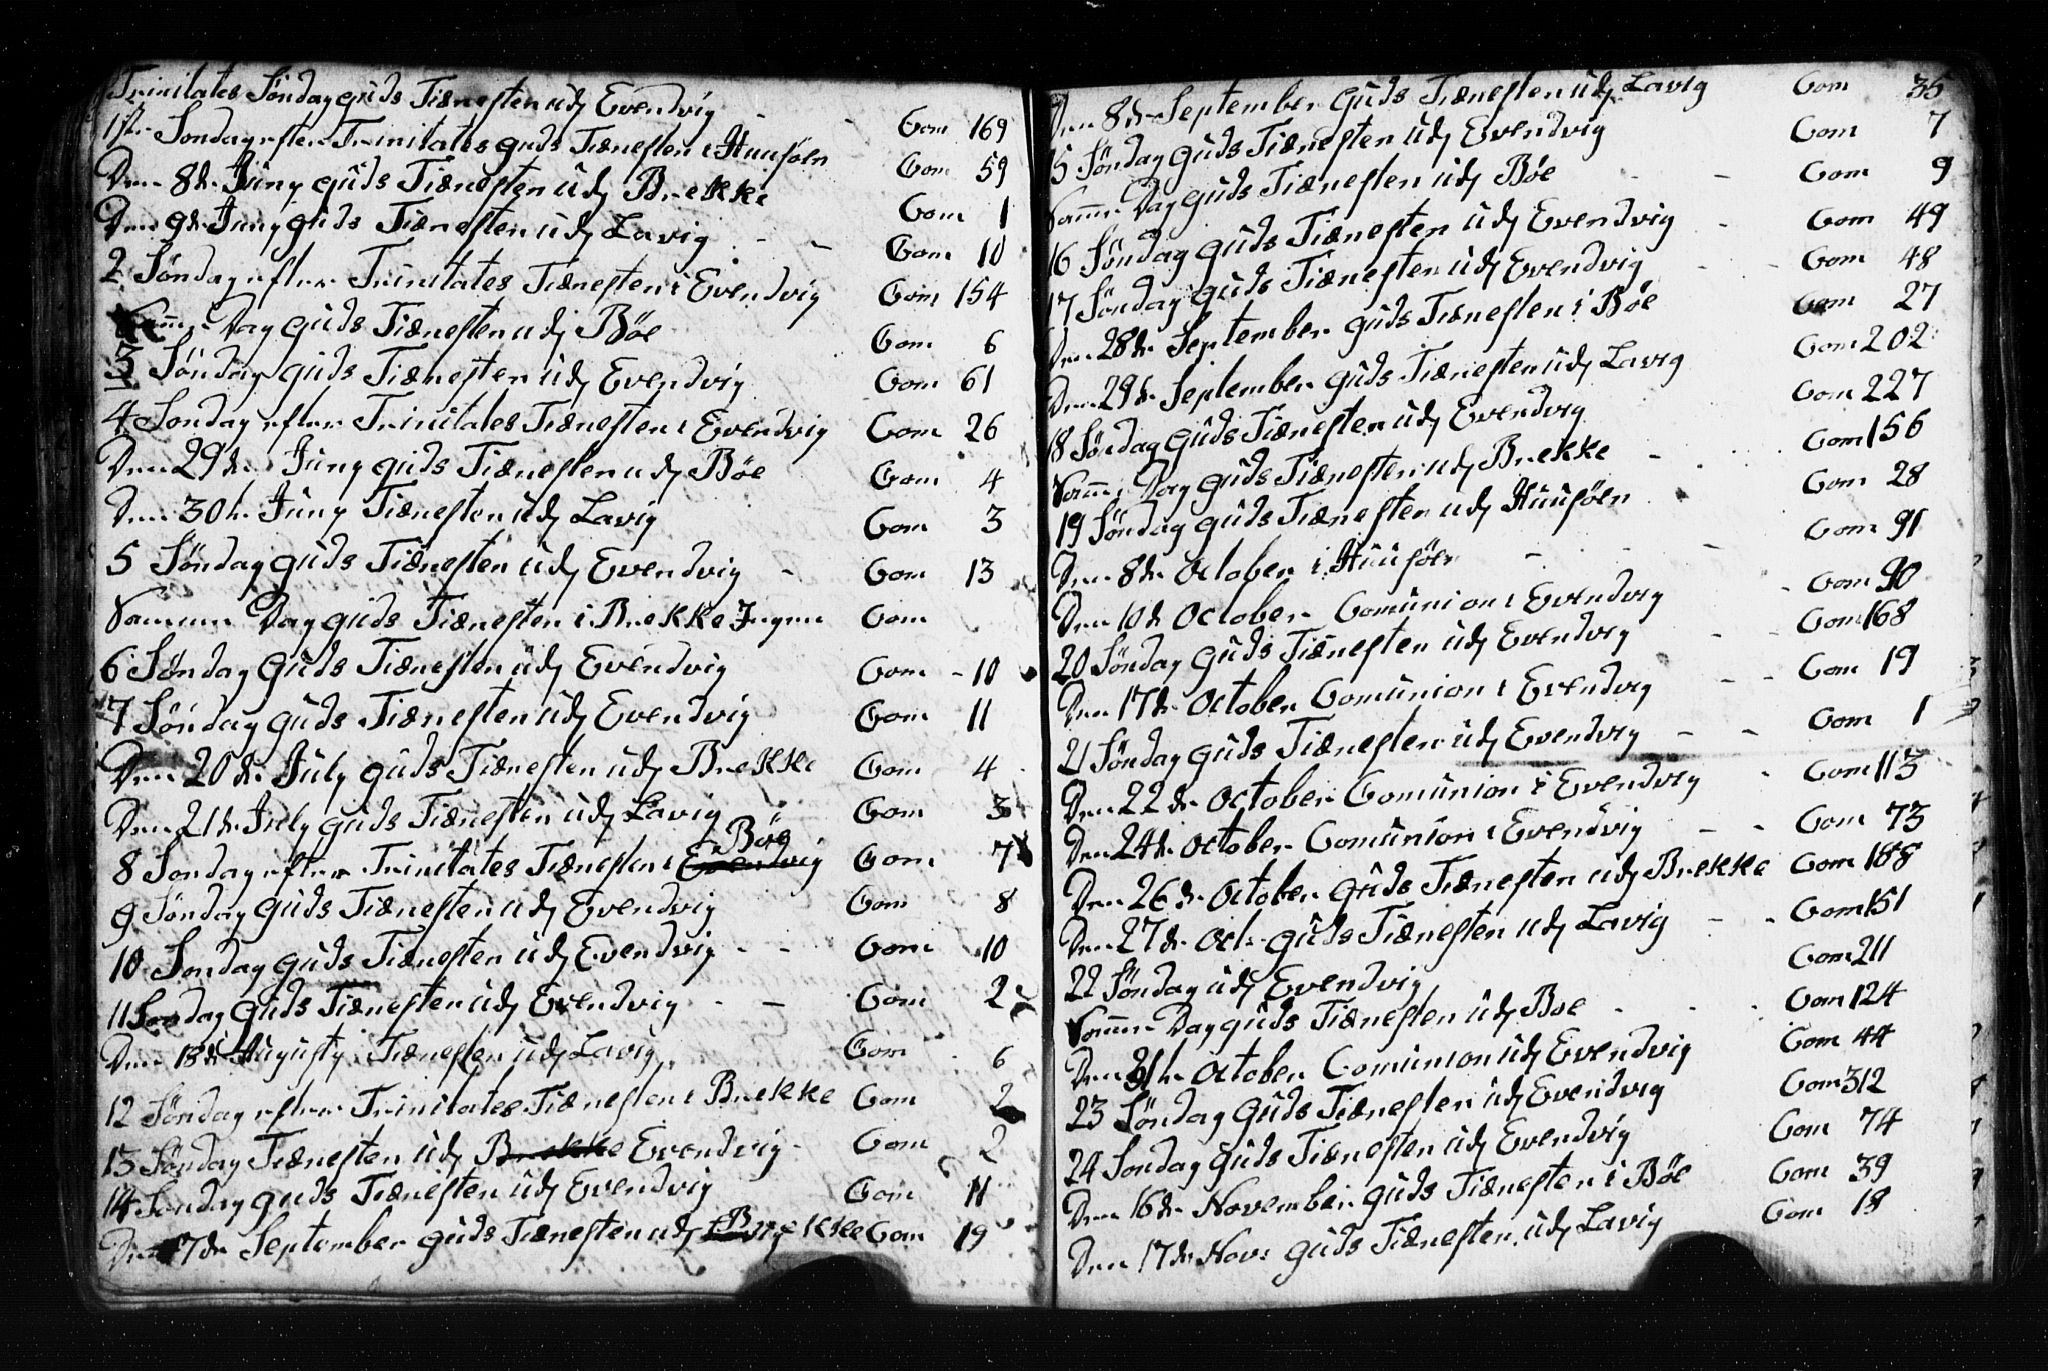 Trinitates Søndag Guds Tiænesten udj Evendvig - - Com 169
1ste Søndag efter Trinitates Guds Tiænesten i Huusøen Com 59
Den 8de Juny Guds Tiænesten udj Brekke Com 1
Den 9de Juny Guds Tiænesten udj Lavig - - Com 10
2 Søndag efter Trinitates Tiænesten i Evendvig Com 154
Samme Dag Guds Tiænesten udj Bøe Com 6
3 Søndag Guds Tiænesten udj Evendvig Com 61
4 Søndag efter Trinitates Tiænesten i Evendvig Com 26
Den 29de Juny Guds Tiænesten udj Bøe Com 4
Den 30te Juny Tiænesten udj Lavig Com 3
5 Søndag Guds Tiænesten udj Evendvig - Com 13
Samme Dag Guds Tiænesten i Brekke Ingen Com
6 Søndag Guds Tiænesten udj Evendvig Com - 10
7 Søndag Guds Tiænesten udj Evendvig Com 11
Den 20de July Guds Tiænesten udj Brekke Com 4
Den 21de July Guds Tiænesten udj Lavig Com 3
8 Søndag efter Trinitates Tiænesten i Evendvig Bøe Com 7
9 Søndag Guds Tiænesten udj Evendvig Com 8
10 Søndag Guds Tiænesten udj Evendvig - - Com 10
11 Søndag Guds Tiænesten udj Evendvig - - Com 2
Den 18de Augusty Tiænesten udj Lavig Com 6
12 Søndag efter Trinitates Tiænesten i Brekke Com 2
13 Søndag Tiænesten udj Brekke Evendvig - Com 2
14 Søndag Guds Tiænesten udj Evendvig Com 11
Den 7de September Guds Tiænesten udj Brekke Com 19
Den 8de September Guds Tiænesten udj Lavig Com 35
15 Søndag Guds Tiænesten udj Evendvig Com 7
Samme Dag Guds Tiænesten udj Bøe - - Com 9
16 Søndag Guds Tiænesten udj Evendvig - Com 49
17 Søndag Guds Tiænesten udj Evendvig - - Com 48
Den 28de September Guds Tiænesten i Bøe Com 27
Den 29de September Guds Tiænesten udj Lavig Com 202
18 Søndag Guds Tiænesten udj Evendvig Com 227
Samme Dag Guds Tiænesten udj Brekke - Com 156
19 Søndag Guds Tiænesten udj Huusøen Com 28
Den 8de October i Huusøen - - - Com 91
Den 10de October Comunion i Evendvig - Com 90
20 Søndag Guds Tiænesten udj Evendvig - - Com 168
Den 17de October Comunion i Evendvig - - Com 19
21 Søndag Guds Tiænesten udj Evendvig - - Com 1
Den 22de October Comunion i Evendvig - Com 113
Den 24de October Comunion i Evendvig - - Com 73
Den 26de October Guds Tiænesten udj Brekke Com 188
Den 27de Oct: Guds Tiænesten udj Lavig - - Com 151
22 Søndag udj Evendvig Com 211
Samme Dag Guds Tiænesten udj Bøe - - - Com 124
Den 31te October Comunion udj Evendvig Com 44
23 Søndag Guds Tiænesten udj Evendvig Com 312
24 Søndag Guds Tiænesten udj Evendvig Com 74
Den 16de November Guds Tiænesten i Bøe Com 39
Den 17de Nov: Guds Tiænesten udj Lavig Com 18